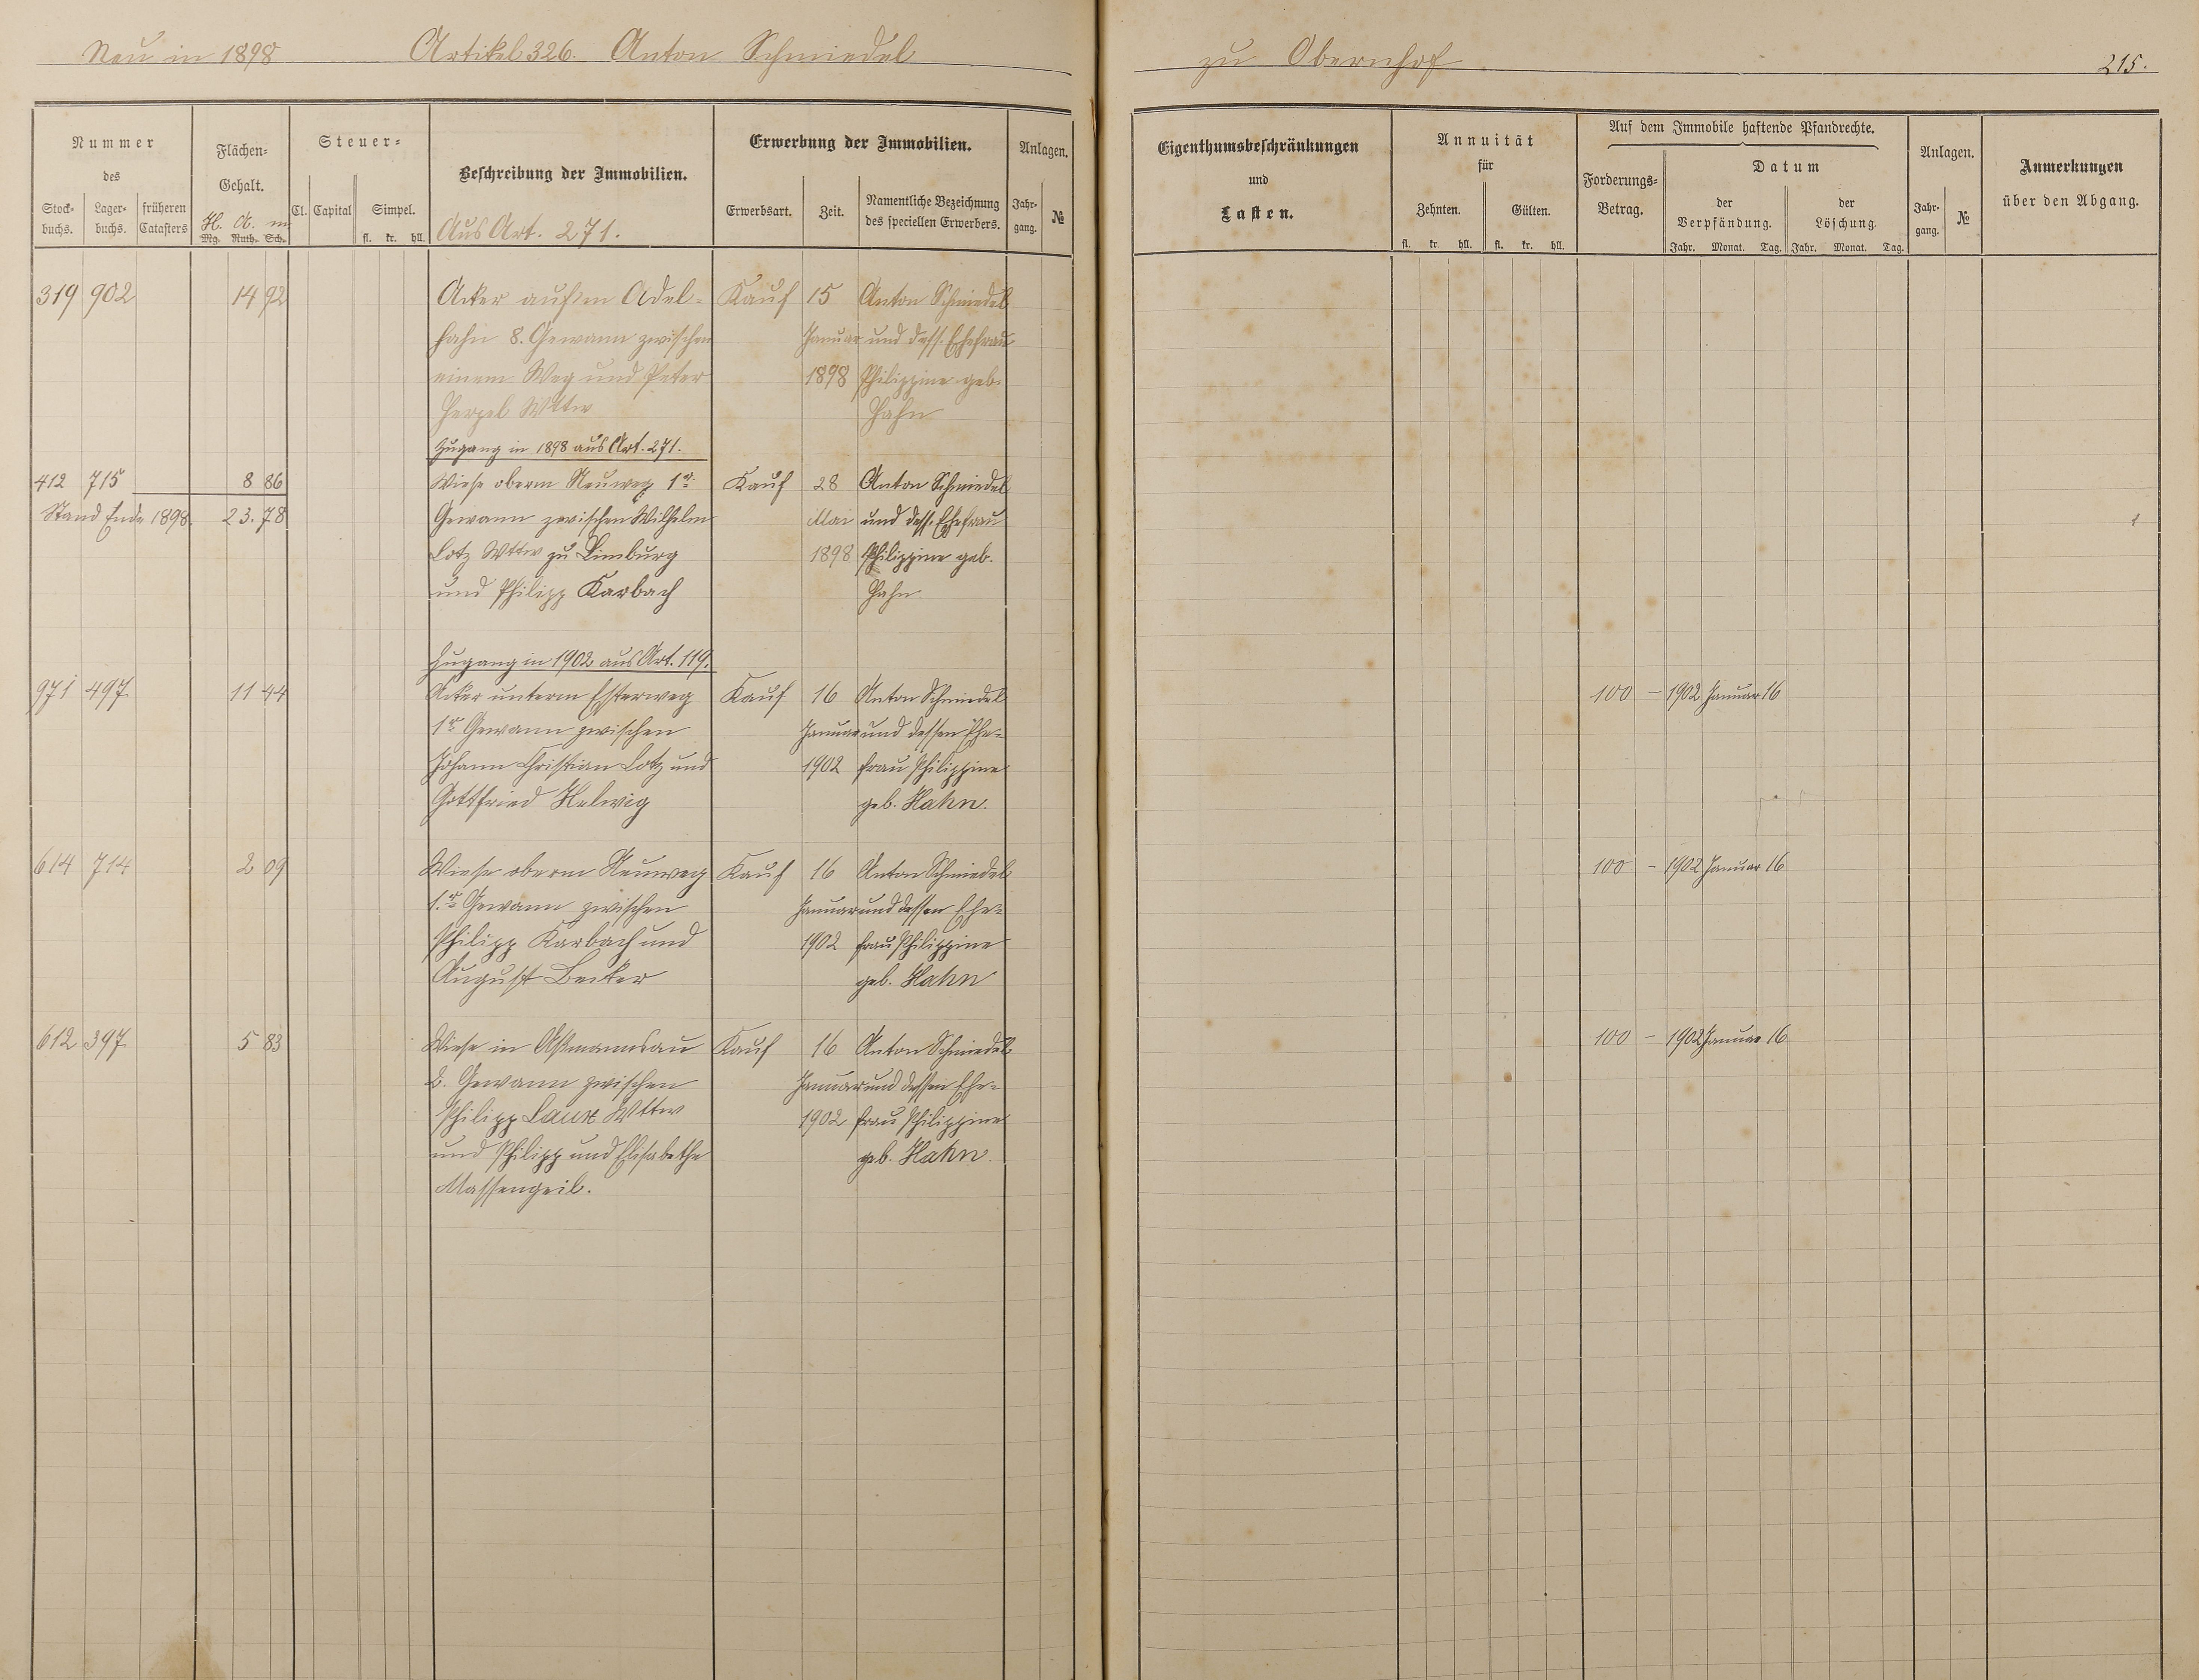 Neu in 1898 Artikel 326. Anton Schmiedel zu Obernhof 215.
Nummer des
Stock-buchs. Lager-buchs. früheren Catasters
Flächen-Gehalt.
H. A. m
Mg. Ruth. Sch.
Steuer-
Cl. Capital Simpel.
fl. kr. hll.
Beschreibung der Immobilien.
Aus Art. 271.
Erwerbung der Immobilien.
Erwerbsart. Zeit. Namentliche Bezeichnung des speciellen Erwerbers.
Anlagen.
Jahr-gang. №
Eigenthumsbeschränkungen
und
Lasten.
Annuität
für
Zehnten. Gülten.
fl. kr. hll. fl. kr. hll.
Auf dem Immobile haftende Pfandrechte.
Forderungs-Betrag.
Datum
der Verpfändung. der Löschung.
Jahr. Monat. Tag. Jahr. Monat. Tag.
Anlagen.
Jahr-gang. №
Anmerkungen
über den Abgang.
319 902 14 92 Acker auf'm Adel- Kauf 15 Anton Schmiedel
hahn 8. Gewann zwischen Januar und dess. Ehefrau
einem Weg und Peter 1898 Philippine geb.
Herpel Wttw Hahn
Zugang in 1898 aus Art. 271.
412 715 8 86 Wiese oberm Neuweg 1r. Kauf 28 Anton Schmiedel
Stand Ende 1898. 23.78 Gewann zwischen Wilhelm Mai und dess. Ehefrau
Lotz Wttw zu Limburg 1898 Philippine geb.
und Philipp Karbach Hahn
Zugang in 1902 aus Art. 119.
971 497. 11 44 Acker unterm Esterweg Kauf 16 Anton Schmiedel 100 – 1902 Januar 16
1r Gewann zwischen Januar und dessen Ehe-
Johann Christian Lotz und 1902 frau Philippine
Gottfried Helwig geb. Hahn.
614 714 2 09 Wiese oberm Neuweg Kauf 16 Anton Schmiedel 100 – 1902 Januar 16
1.r Gewann zwischen Januar und dessen Ehe-
Philipp Karbach und 1902 frau Philippine
August Becker geb. Hahn
612 397. 5 83 Wiese in Aßmannsau Kauf 16 Anton Schmiedel 100 – 1902 Januar 16
2. Gewann zwischen Januar und dessen Ehe-
Philipp Laux Wttw 1902 frau Philippine
und Philipp und Elisabethe geb. Hahn.
Massengeil.